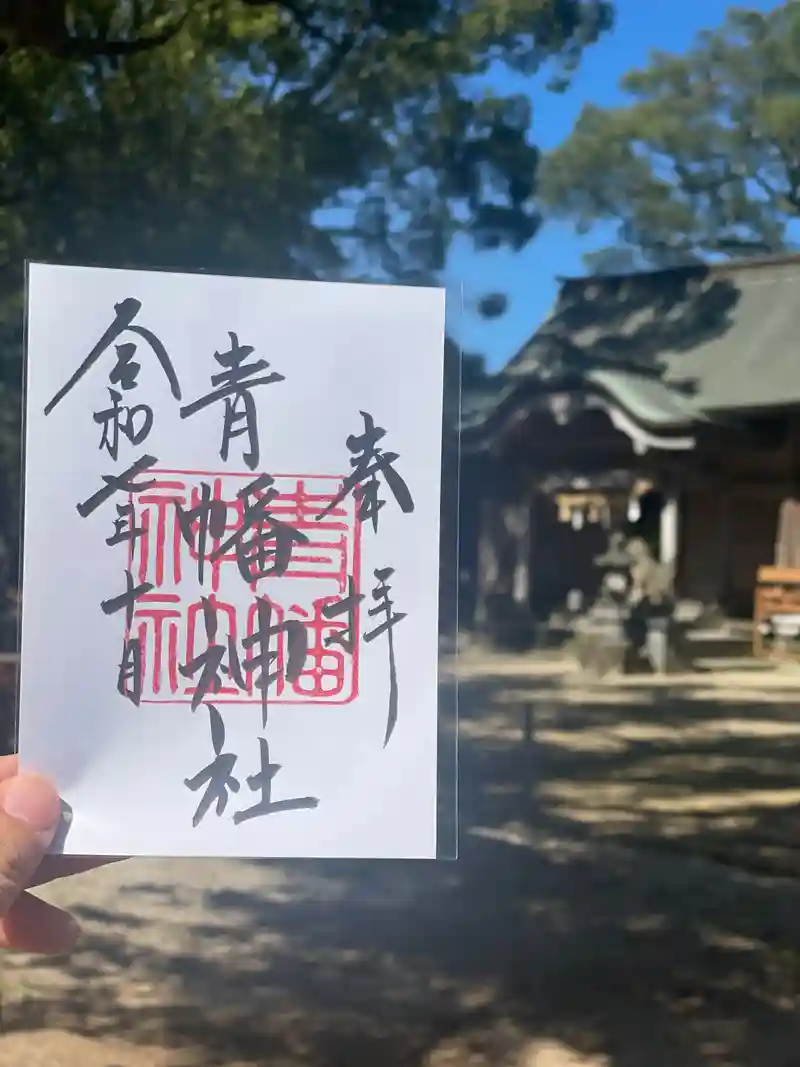 奉拝
青幡神社
青幡神社
令和七年十月